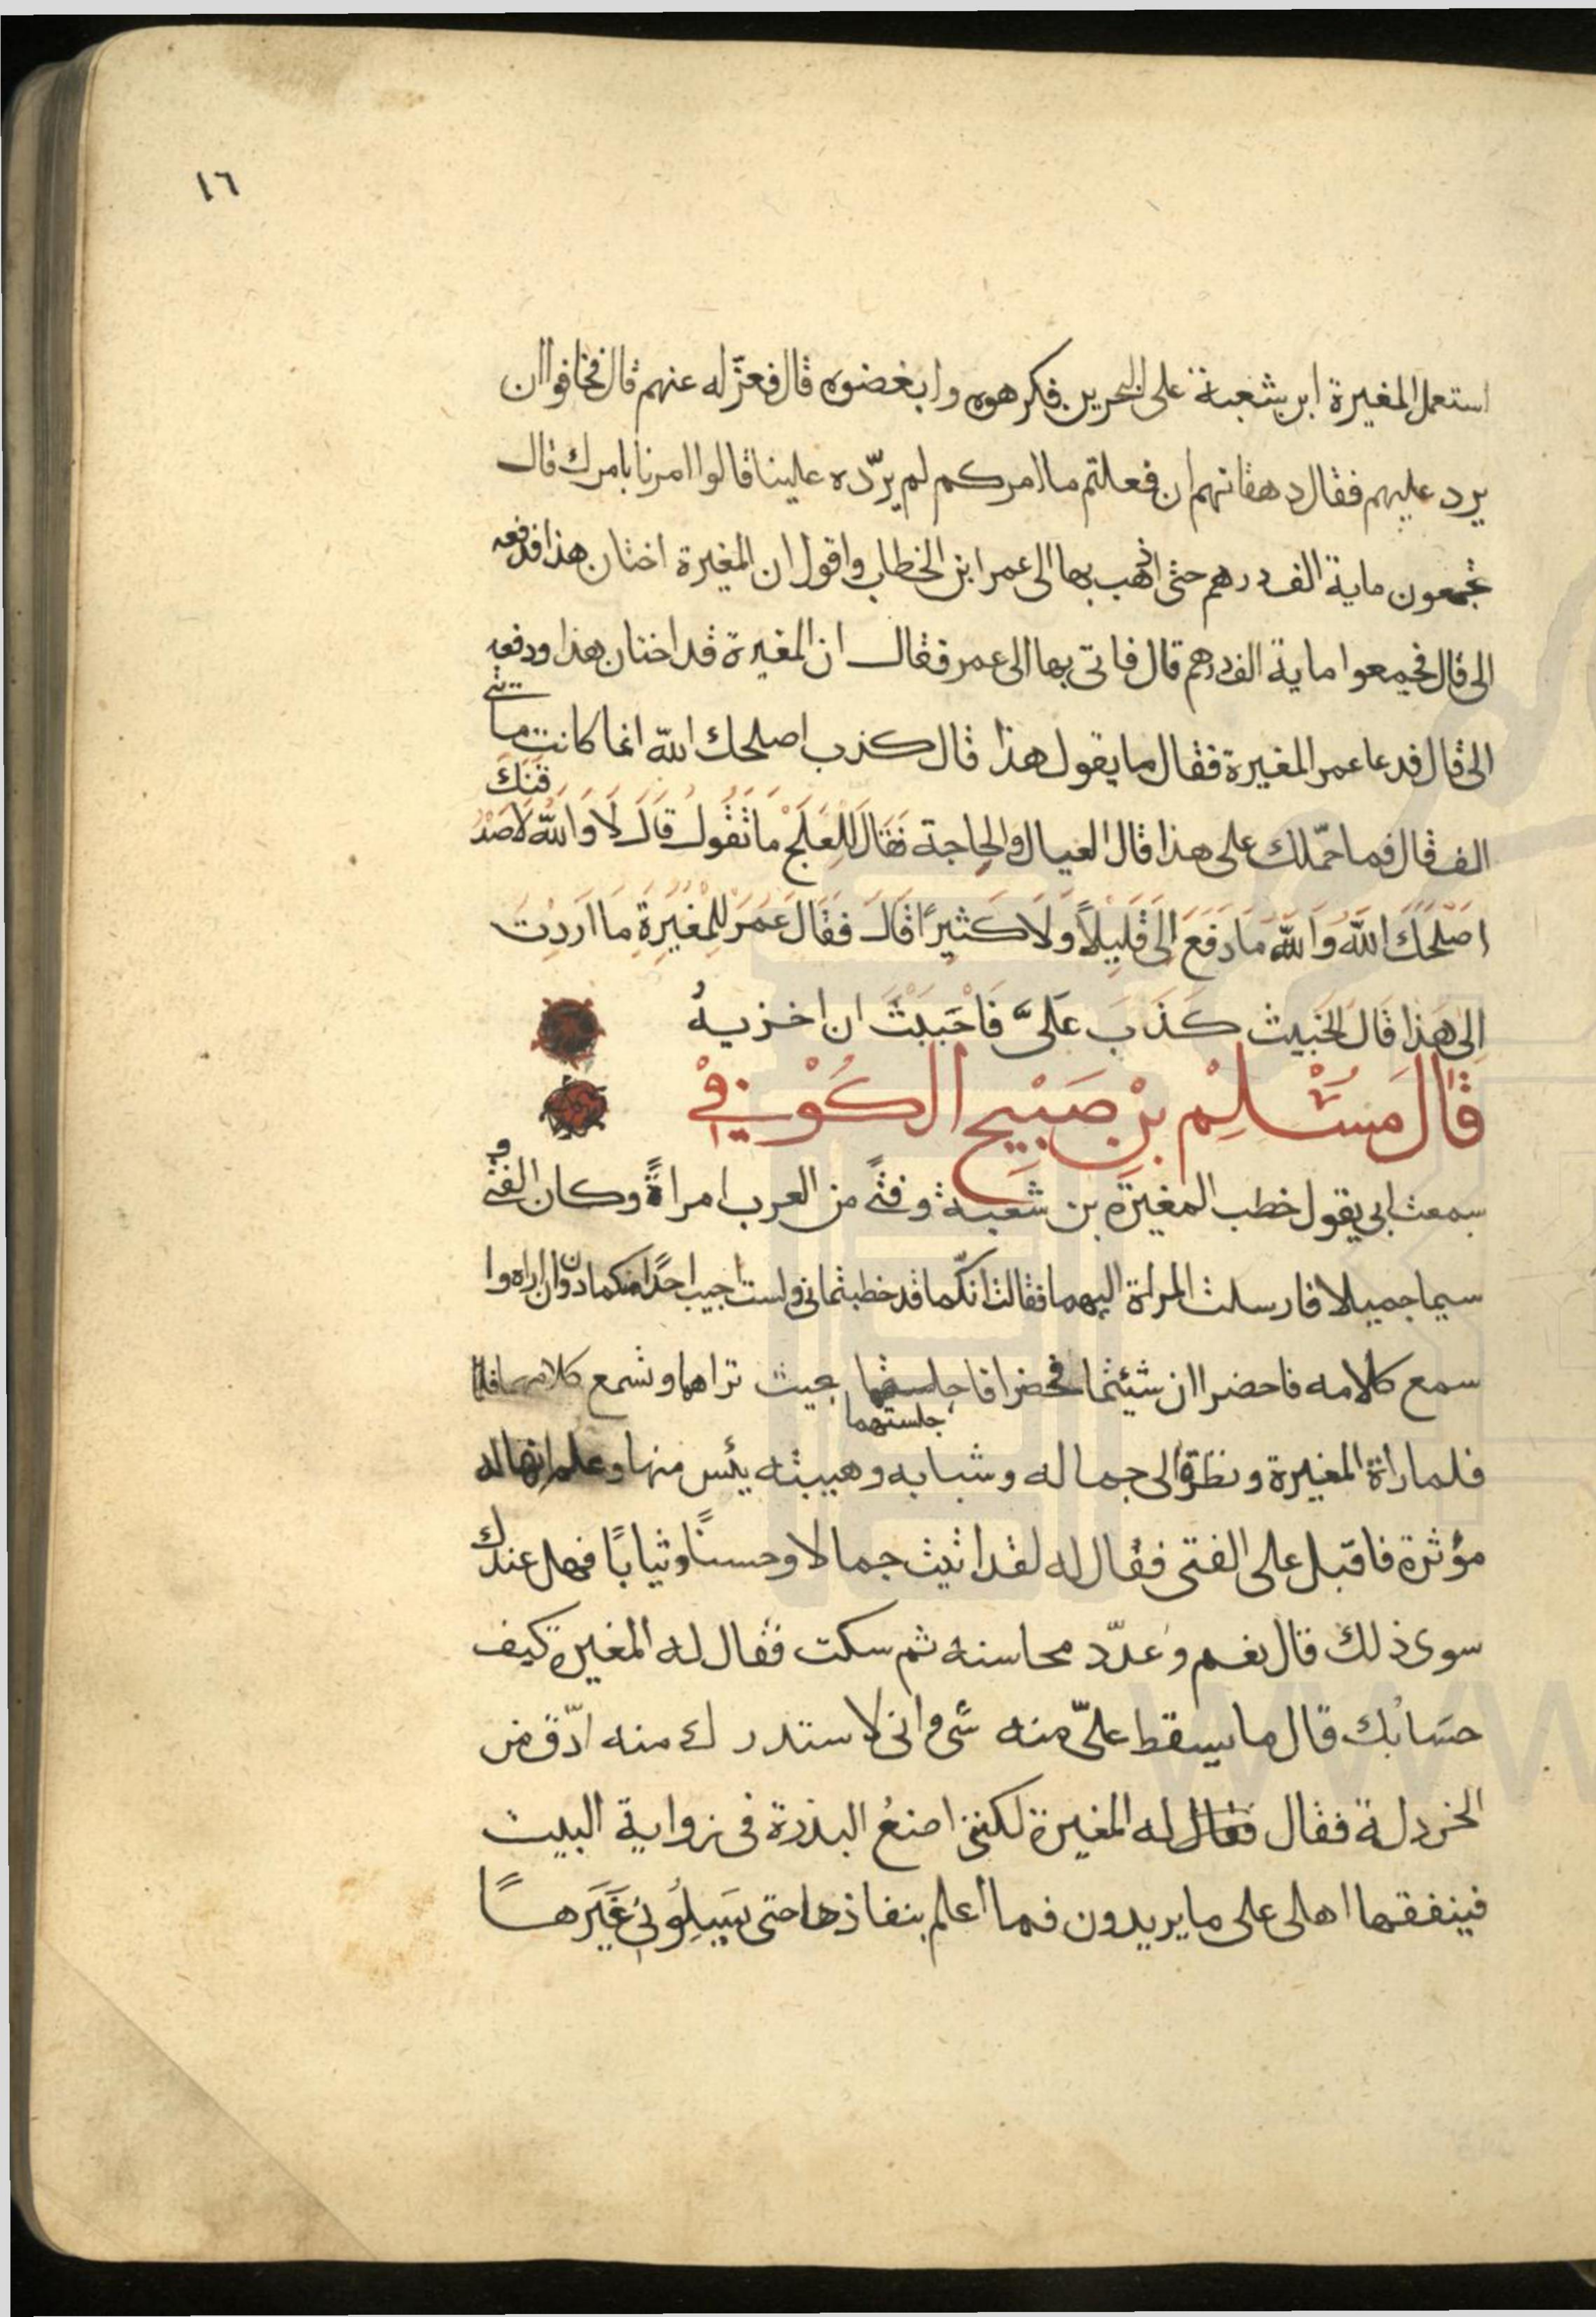 ١٦
استعمل المغيرة ابن شعبة على البحرين فكرهوه وابغضوه قال فعزله عنهم قال فخافوا ان
يرد عليهم فقال دهقانهم ان فعلتم ما امركم لم يردّه علينا قالوا امرنا بامرك قال
تجمعون ماية الف درهم حتى اذهب بها الى عمر ابن الخطاب واقول ان المغيرة اختان هذا فدفعه
الى قال فجمعوا ماية الف درهم قال فاتى بها الى عمر فقال ان المغيرة قد اختان هذا ودفعه
الى قال فدعا عمر المغيرة فقال ما يقول هذا قال كذب اصلحك الله انما كانت مايتى
الف قال فما حمّلك على هذا قال العيال والحاجة فَقَالَ لِلْعِلْجِ مَا تَقُولُ قَالَ لَا وَاللّهِ لَاَصْدُقَنَّكَ
اَصْلَحَكَ اللّهُ وَاللّهِ مَا دَفَعَ اِلَىَّ قَلِيلًا وَلَا كَثِيرًا قَالَ فَقَالَ عُمَرُ لِلْمُغِيرَةِ مَا اَرَدْتَ
اِلى هَذا قَالَ الخَبِيث كَذَبَ عَلَىَّ فَاَحْبَبْتُ ان اخزيهُ
قَالَ مُسْلِمْ بْنِ صَبَيْحِ الكُوْفِيْ
سمعت ابى يقول خطب المغيرة بن شعبة وفتًى من العرب امراةً وكان الفتى و
سيما جميلا فارسلت المراة اليهما فقالت انكّما قد خطبتمانى ولست اجيب احدًا منكما دون ان اراه وا
سمع كلامه فاحضرا ان شيئتما فحضرا فاجلستهما بحيث تراهما وتسمع كلامهما
جلستهما
فلما راة المغيرة ونظر الى جماله وشبابه وهيبته يئس منها وعلم انها له
مؤثرة فاقبل على الفتى فقال له لقد اتيت جمالا وحسنًا وثيابًا فهل عندك
سوى ذلك قال نعم وعدّد محاسنه ثم سكت فقال له المغيرة كيف
حسَابُك قال ما يسقط علىّ منه شى وانى لاستدرك منه ادّق من
الخردلة فقال فقال له المغيرة لكننى اضعُ البدرة فى زواية البيت
فينفقها اهلى على ما يريدون فما اعلم بنفاذها حتى يَسِيلُونِى غَيَرهَا